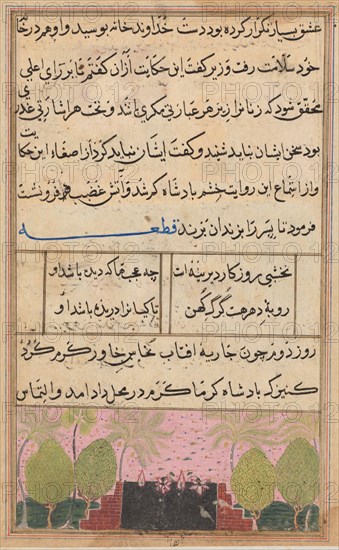 عشق بسیار تکرار کرده بود دست خداوند خانه بوسید و او هم در خانه
خود سلامت رفت وزیر گفت این حکایت ازان گفتم تا بر رای اعلی
محقق شود که زنانرا زیر هر عبارتی مکری باشد و تحت هر اشارتی غدری
بود سخن ایشان نباید شنید و گفت ایشان نباید کرد از اصغاء این حکایت
و از استماع این روایت خشم پادشاه کم شد و آتش غضب هم فرو نشست
فرمود تا پسر را بزندان بردند قطعه
نخشبی روز کار دیرینه است
چه عجب ها که دیده باشد او
روبۀ دهر هست گرگ کهن
تا کیانرا دریده باشد او
روز دوم چون جاریه افتاب نخاس خاور کرم کرد
کنیزک پادشاه کرماکرم در محل داد امد و التماس
PHOTO12